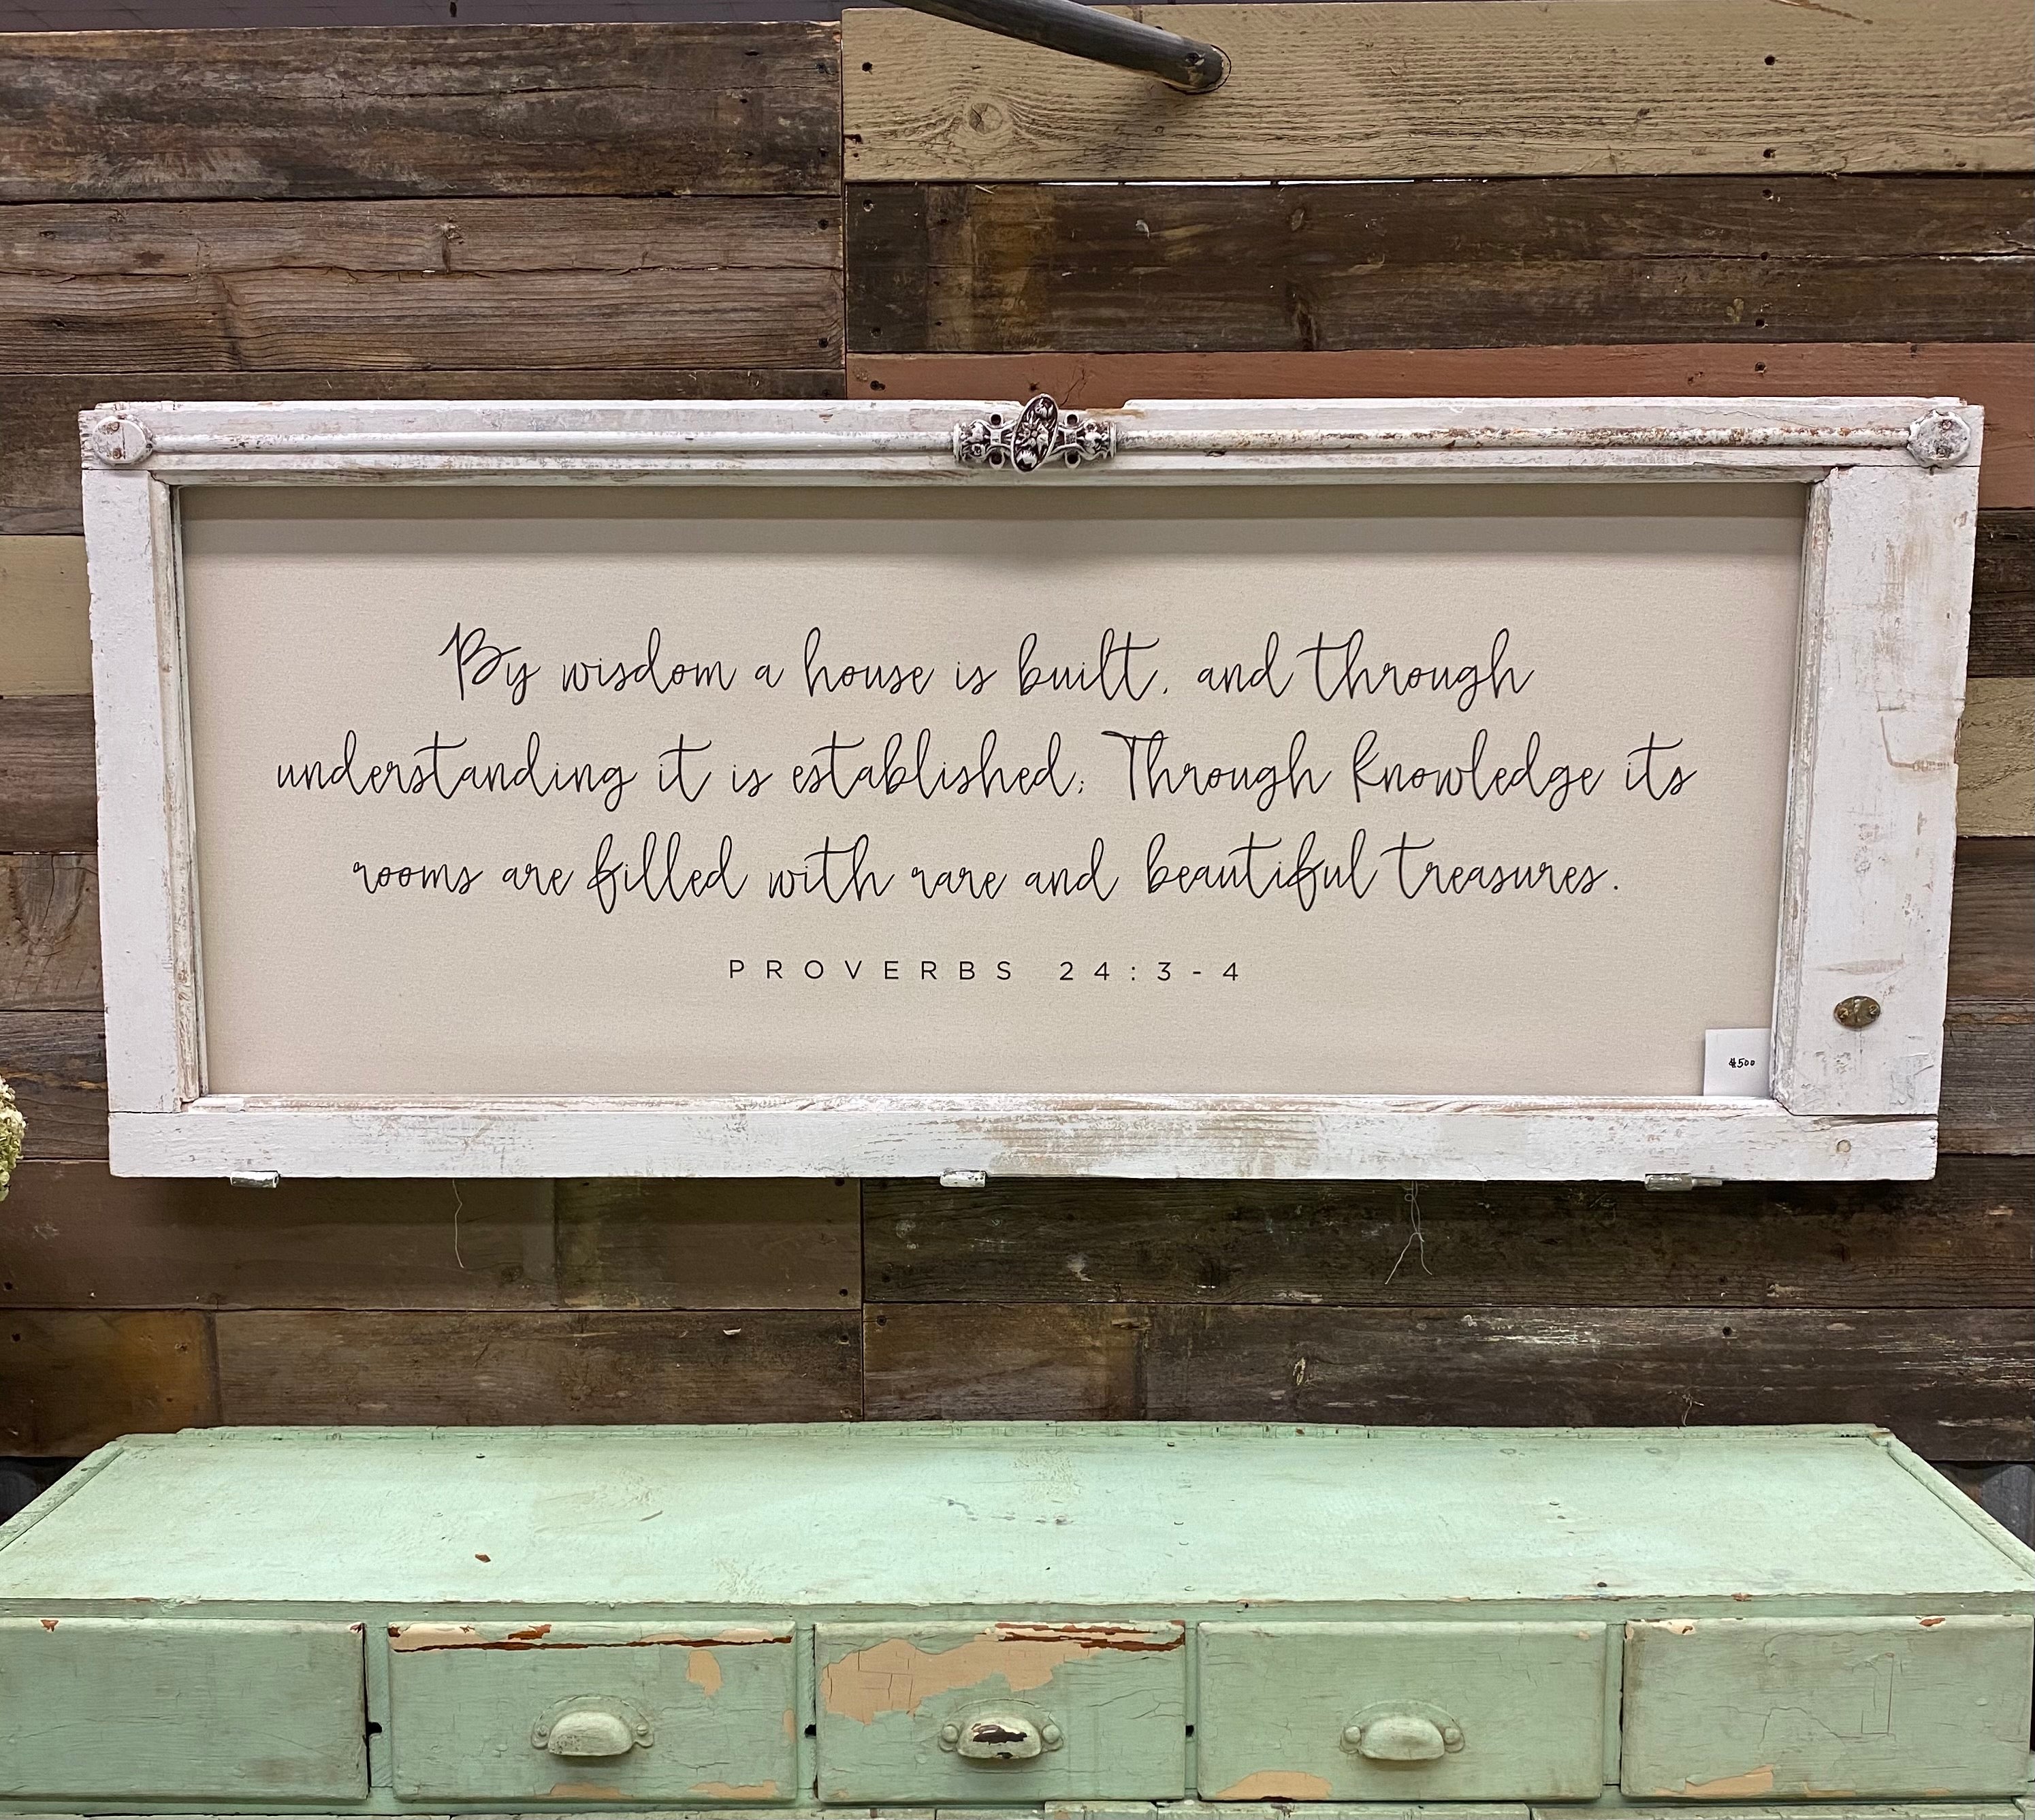 By wisdom a house is built, and through
understanding it is established; Through knowledge its
rooms are filled with rare and beautiful treasures.
PROVERBS 24:3-4
$500